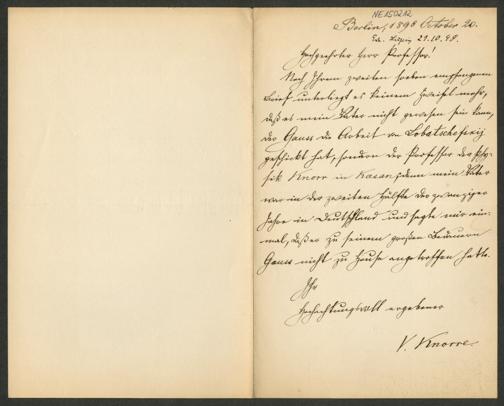 NE150212
Berlin, 1898 October 20.
Hochgeehrter Herr Professor!
Nach Ihrem zweiten soeben empfangenen
Brief unterliegt es keinem Zweifel mehr,
daß es mein Vater nicht gewesen sein kann,
der Gauss die Arbeit von Lobatschefskij
geschickt hat, sondern der Professor der Phy-
sik Knorr in Kasan; denn mein Vater
war in der zweiten Hälfte der zwanziger
Jahre in Deutschland und sagte mir ein-
mal, daß er zu seinem großen Bedauern
Gauss nicht zu Hause angetroffen hatte.
Ihr
hochachtungsvoll ergebener
V. Knorre.